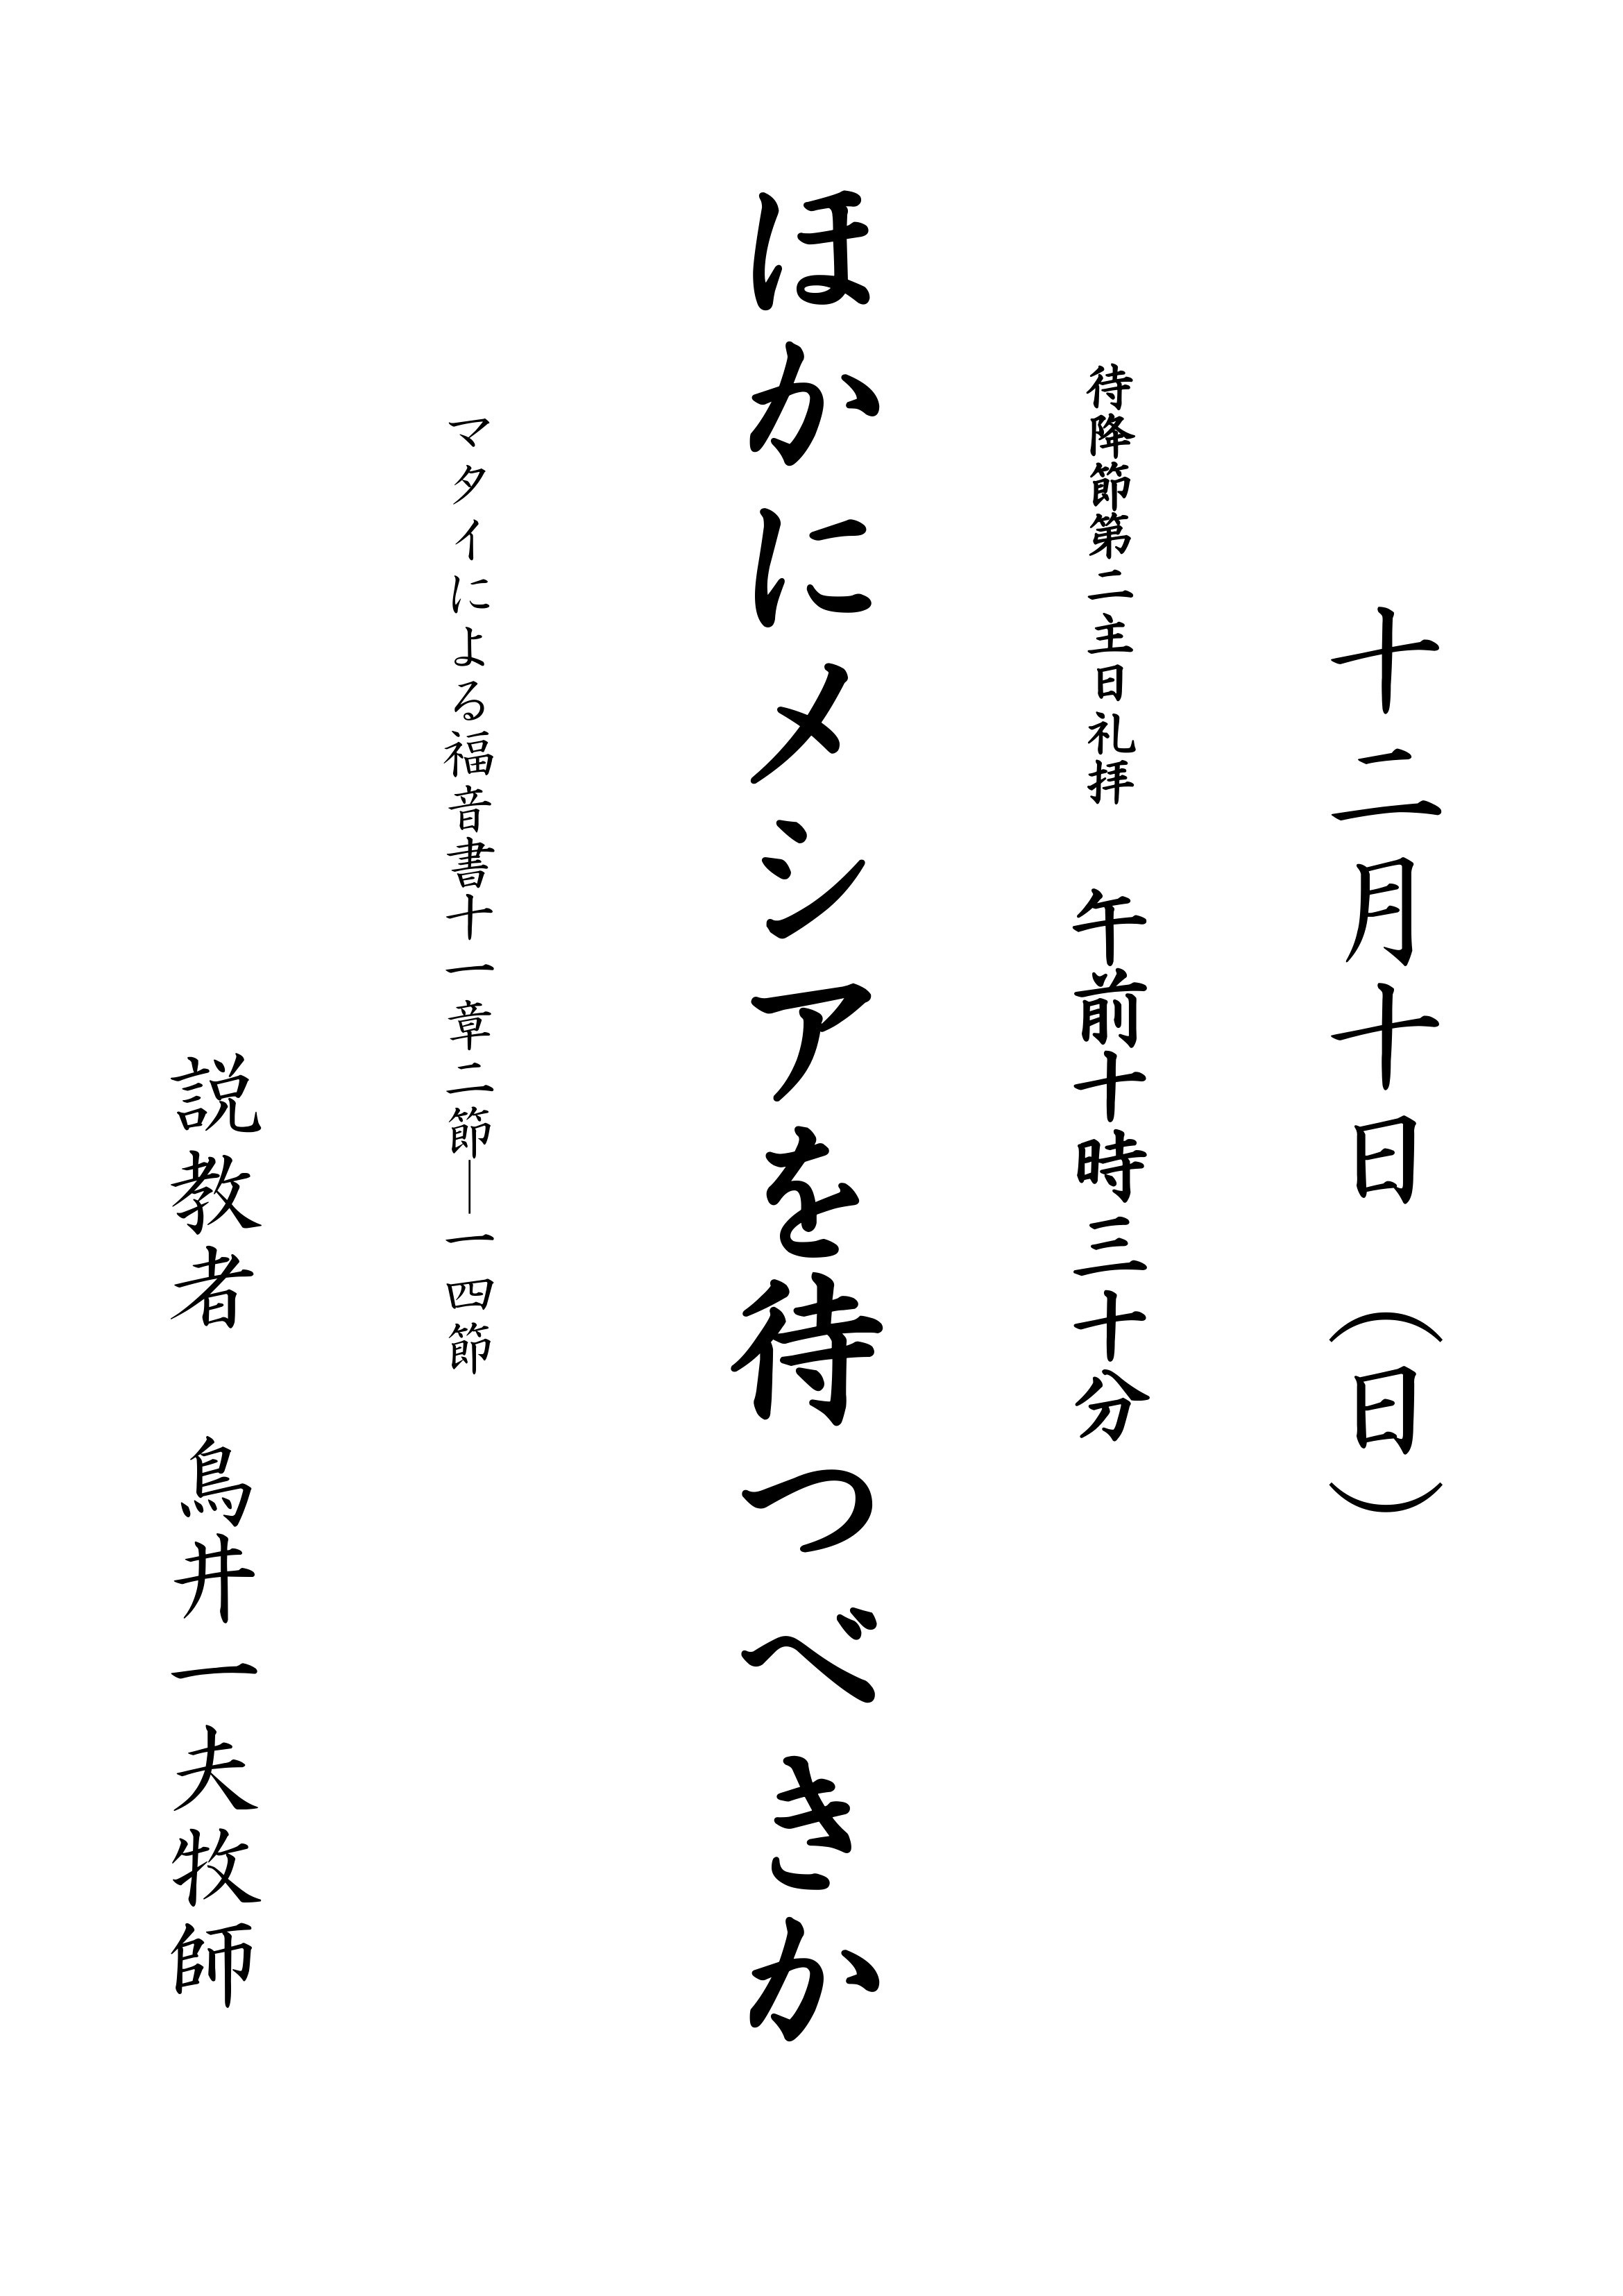 十二月十日（日）
待降節第二主日礼拝　午前十時三十分
ほかにメシアを待つべきか
マタイによる福音書十一章二節―一四節
説教者　鳥井一夫牧師